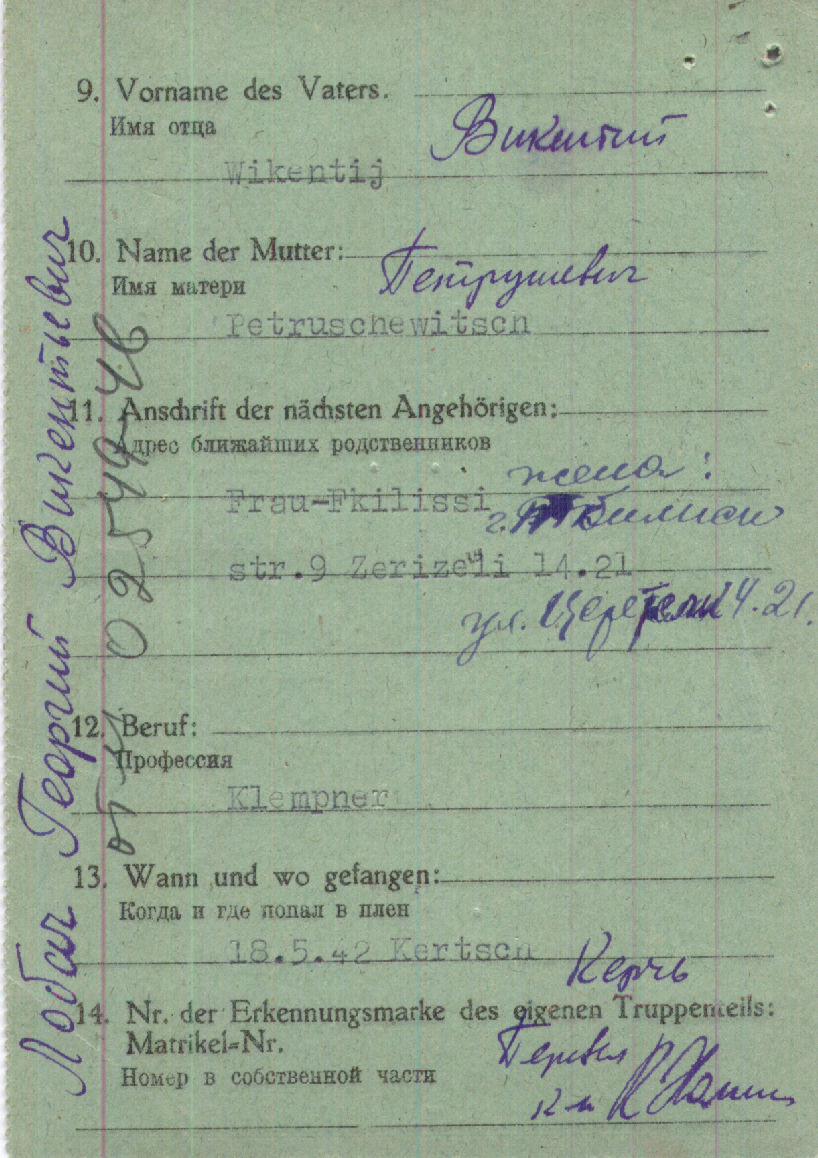 9. Vorname des Vaters.
Имя отца
Викентий
Wikentij
10. Name der Mutter:
Петрушевич
Имя матери
Petruschewitsch
11. Anschrift der nächsten Angehörigen:
Адрес ближайших родственников
жена:
Frau-Fkilissi
г. Тбилиси
str.9 Zerizeli 14.21
ул. Церетели 14.21.
12. Beruf:
Профессия
Klempner
13. Wann und wo gefangen:
Когда и где попал в плен
18.5.42 Kertsch
Керчь
14. Nr. der Erkennungsmarke des eigenen Truppenteils:
Matrikel-Nr.
Перевел
Номер в собственной части
Лобач Георгий Викентьевич